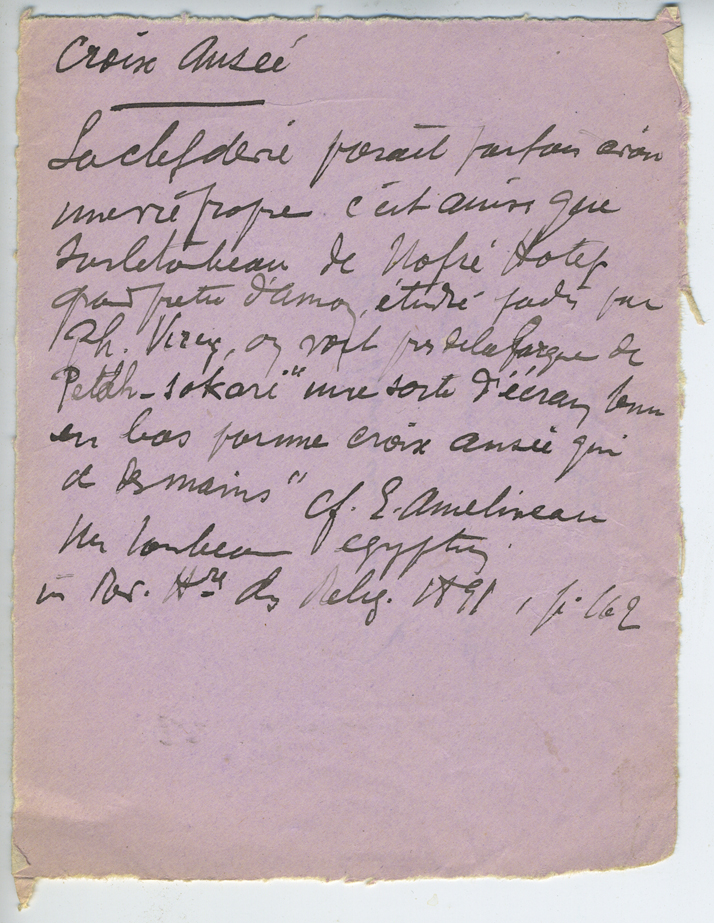 Croix Ansée
La clef de vie paraît parfois avoir
une vie propre. c'est ainsi que
sur le tombeau de Nofré Hotep
grand prêtre d'Amon, étudié jadis par
Ph. Virey, on voit près de la barque de
Petah-sokari "une sorte d'écran tenu
en bas par une croix ansée qui
a des mains" cf. E. Amelineau
Un tombeau egyptien
in Rev. Hre des Relig. 1891, p. 162